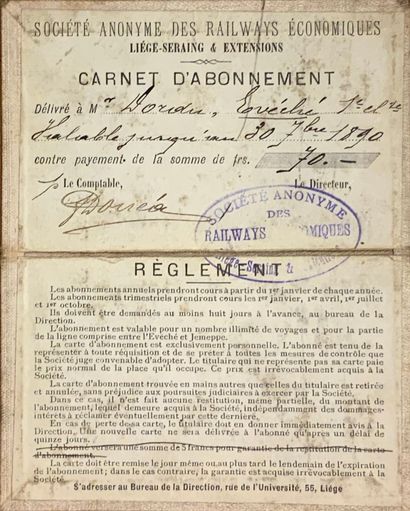 SOCIÉTÉ ANONYME DES RAILWAYS ÉCONOMIQUES
LIÉGE-SERAING & EXTENSIONS
CARNET D'ABONNEMENT
Délivré à Mr Dordu, Evêché 1e cl
Valable jusqu'au 30 7bre 1890
contre payement de la somme de frs. 70.—
Le Comptable,
Le Directeur,
SOCIÉTÉ ANONYME
DES
RAILWAYS ÉCONOMIQUES
Liége-Seraing &
RÈGLEMENT
Les abonnements annuels prendront cours à partir du 1er janvier de chaque année.
Les abonnements trimestriels prendront cours les 1er janvier, 1er avril, 1er juillet
et 1er octobre.
Ils doivent être demandés au moins huit jours à l'avance, au bureau de la
Direction.
L'abonnement est valable pour un nombre illimité de voyages et pour la partie
de la ligne comprise entre l'Evêché et Jemeppe.
La carte d'abonnement est exclusivement personnelle. L'abonné est tenu de la
représenter à toute réquisition et de se prêter à toutes les mesures de contrôle que
la Société juge convenable d'adopter. Le titulaire qui ne représente pas sa carte paie
le prix normal de la place qu'il occupe. Ce prix est irrévocablement acquis à la
Société.
La carte d'abonnement trouvée en mains autres que celles du titulaire est retirée
et annulée, sans préjudice aux poursuites judiciaires à exercer par la Société.
Dans ce cas, il n'est fait aucune restitution, même partielle, du montant de
l'abonnement, lequel demeure acquis à la Société, indépendamment des dommages-
intérêts à réclamer éventuellement par cette dernière.
En cas de perte de sa carte, le titulaire doit en donner immédiatement avis à la
Direction. Une nouvelle carte ne sera délivrée à l'abonné qu'après un délai de
quinze jours.
L'abonné versera une somme de 5 francs pour garantie de la restitution de la carte
d'abonnement.
La carte doit être remise le jour même ou au plus tard le lendemain de l'expiration
de l'abonnement; dans le cas contraire, la garantie est acquise irrévocablement à la
Société.
S'adresser au Bureau de la Direction, rue de l'Université, 55, Liége